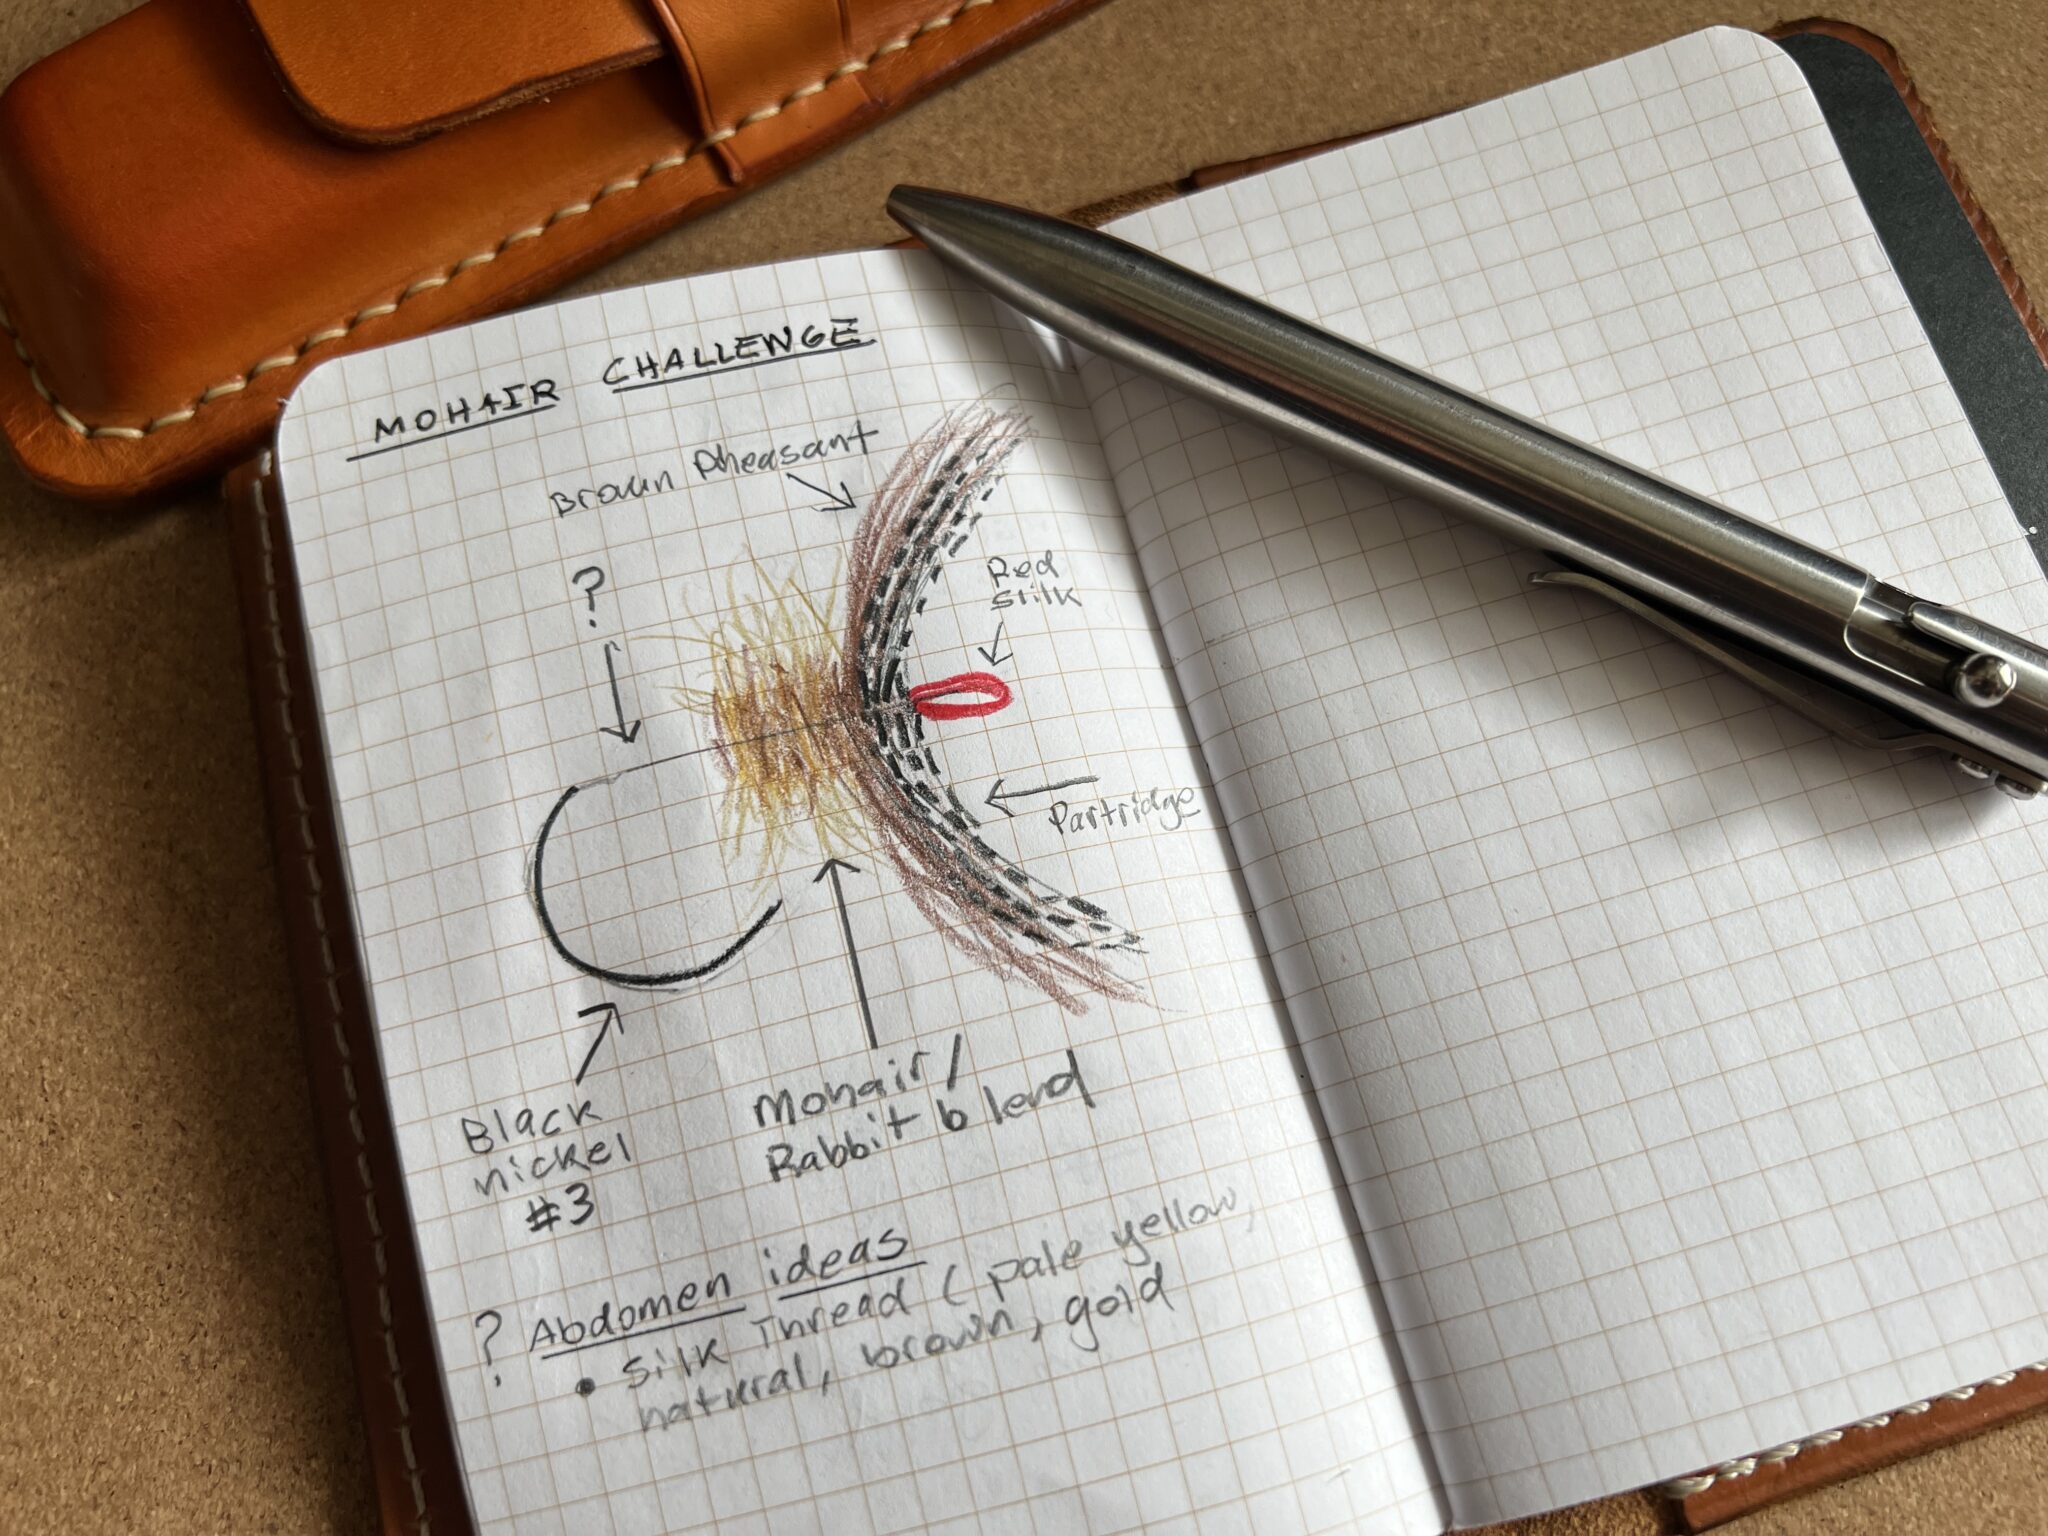 MOHAIR CHALLENGE
Brown Pheasant
?
Red
Silk
Partridge
Black
nickel
#3
Mohair/
Rabbit blend
? Abdomen ideas
• Silk Thread ( pale yellow,
natural, brown, gold